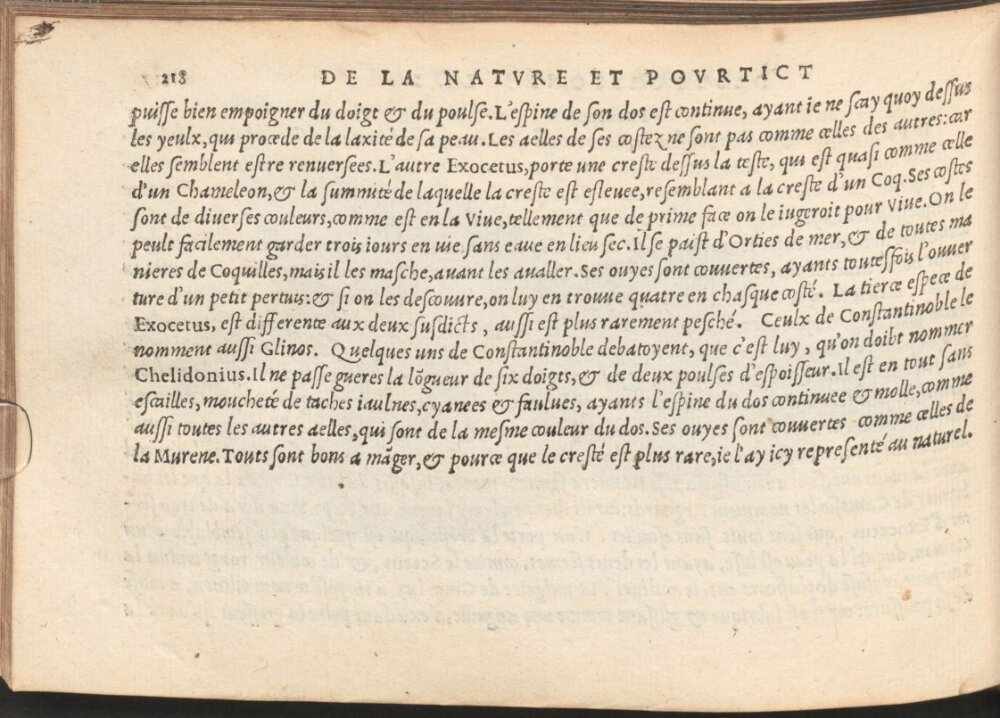 218 DE LA NATVRE ET POVRTICT
puisse bien empoigner du doigt & du poulse. L'espine de son dos est continue, ayant ie ne scay quoy dessus
les yeulx, qui procede de la laxité de sa peau. Les aelles de ses costez ne sont pas comme celles des autres: car
elles semblent estre renuersees. L'autre Exocetus, porte une creste dessus la teste, qui est quasi comme celle
d'un Chameleon, & la summité de laquelle la creste est esleuee, resemblant a la creste d'un Coq. Ses costes
sont de diuerses couleurs, comme est en la Viue, tellement que de prime face on le iugeroit pour Viue. On le
peult facilement garder trois iours en vie sans eaue en lieu sec. Il se paist d'Orties de mer, & de toutes ma
nieres de Coquilles, mais il les masche, auant les aualler. Ses ouyes sont couuertes, ayants toutesfois l'ouuer
ture d'un petit pertuis: & si on les descouure, on luy en trouue quatre en chasque costé. La tierce espece de
Exocetus, est differente aux deux susdicts, aussi est plus rarement pesché. Ceulx de Constantinoble le
nomment aussi Glinos. Quelques uns de Constantinoble debatoyent, que c'est luy, qu'on doibt nommer
Chelidonius. Il ne passe gueres la lõgueur de six doigts, & de deux poulses d'espoisseur. il est en tout sans
escailles, moucheté de taches iaulnes, cyanees & faulues, ayants l'espine du dos continuee & molle, comme
aussi toutes les autres aelles, qui sont de la mesme couleur du dos. Ses ouyes sont couuertes comme celles de
la Murene. Touts sont bons a mãger, & pource que le cresté est plus rare, ie l'ay icy representé au naturel.